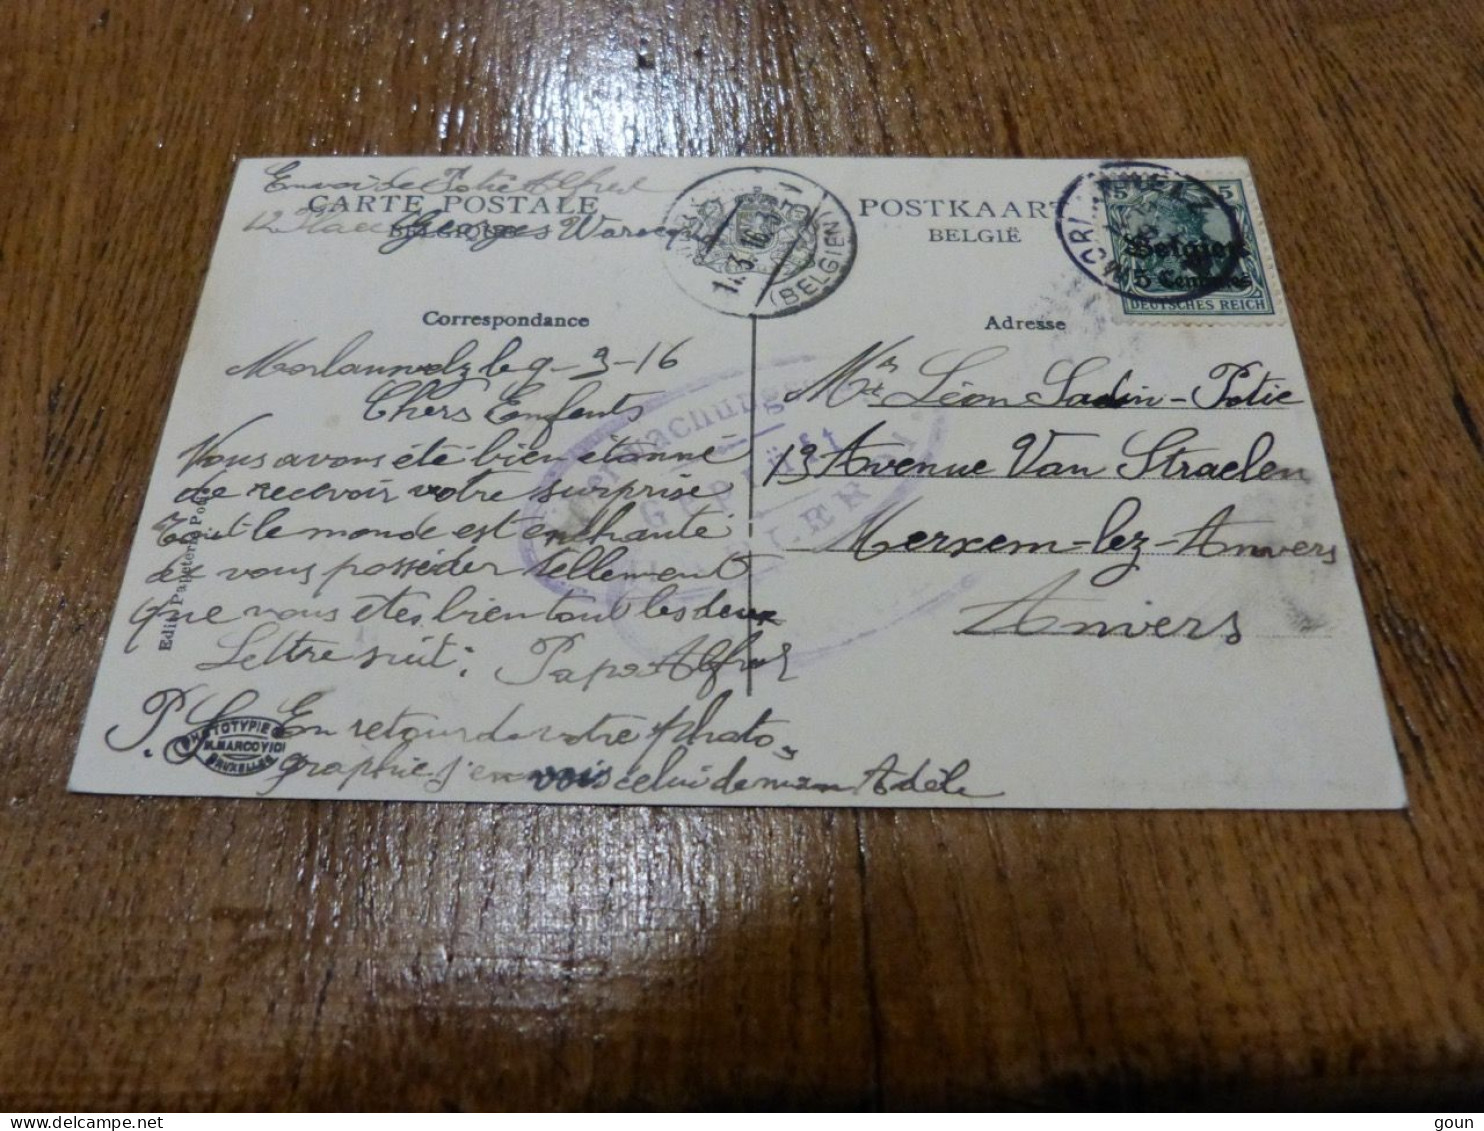 Envoi de Potie Alfred
CARTE POSTALE
12 Place Georges Warocqué
BELGIQUE
POSTKAART
BELGIË
1. 3. 16.
(BELGIEN)
5 5
Belgien
5 Centimes
DEUTSCHES REICH
MORLANWELZ
Correspondance
Adresse
Morlanwelz le 9-3-16
Chers Enfants
Vous avons été bien étonné
de recevoir votre surprise
Tout le monde est enchanté
de vous posséder tellement
que vous êtes bien tout les deux
Lettre suit: Papa Alfred
P.S. En retour de votre photo-
graphie j'envois celui de maman Adèle
Mr et Me Léon Sadin-Potie
13 Avenue Van Straelen
Merxem-lez-Anvers
Anvers
Überwachungs
Geprüft
CHARLEROI
Edit. Papeterie
PHOTOTYPIE
M. MARCOVICI
BRUXELLES
goun
delcampe.net